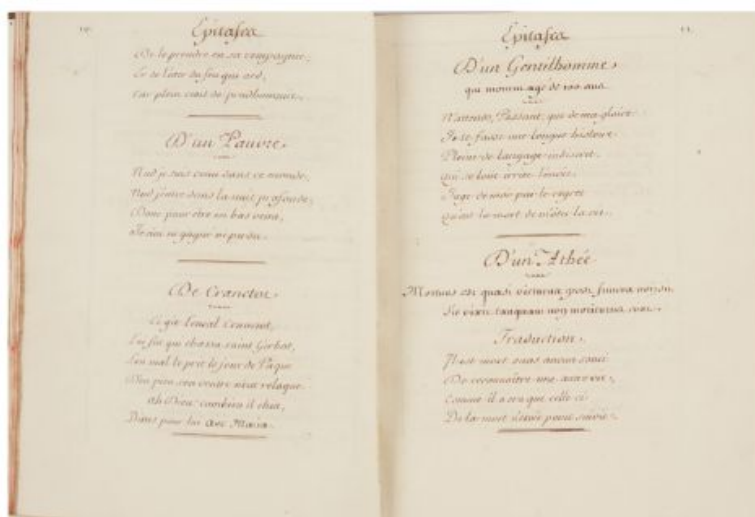 Epitafes
De le prendre en sa compagnie,
Et de l'oter du feu qui ard,
Car plein etait de prudhommie.
D'un Pauvre.
Nud je suis venu dans ce monde,
Nud j'entre dans la nuit profonde,
Donc pour être en bas venu,
Je n'ai ni gagné ni perdu.
De
Ci git
qui chassa saint
le prit le jour de Pâque
son ventre n'eut relaque.
Ah Dieu combien il chia,
Dites pour lui Ave Maria.
Epitafes
D'un Gentilhomme,
qui mourut agé de 100 ans.
N'attends, Passant, que de ma gloire
Je te fasse une longue histoire
Pleine de langage indiscret.
Qui se loue irrite l'envie.
Juge de moi par le regret
Qu'eut la mort de m'ôter la vie.
D'un Athée
Mortuus est quasi victurus post funera non
Sic vixit tanquam non moriturus
Traduction.
Il est mort sans aucun souci
De reconnaître une autre vie,
Comme il a vécu celle ci
De la mort n'être point suivie.